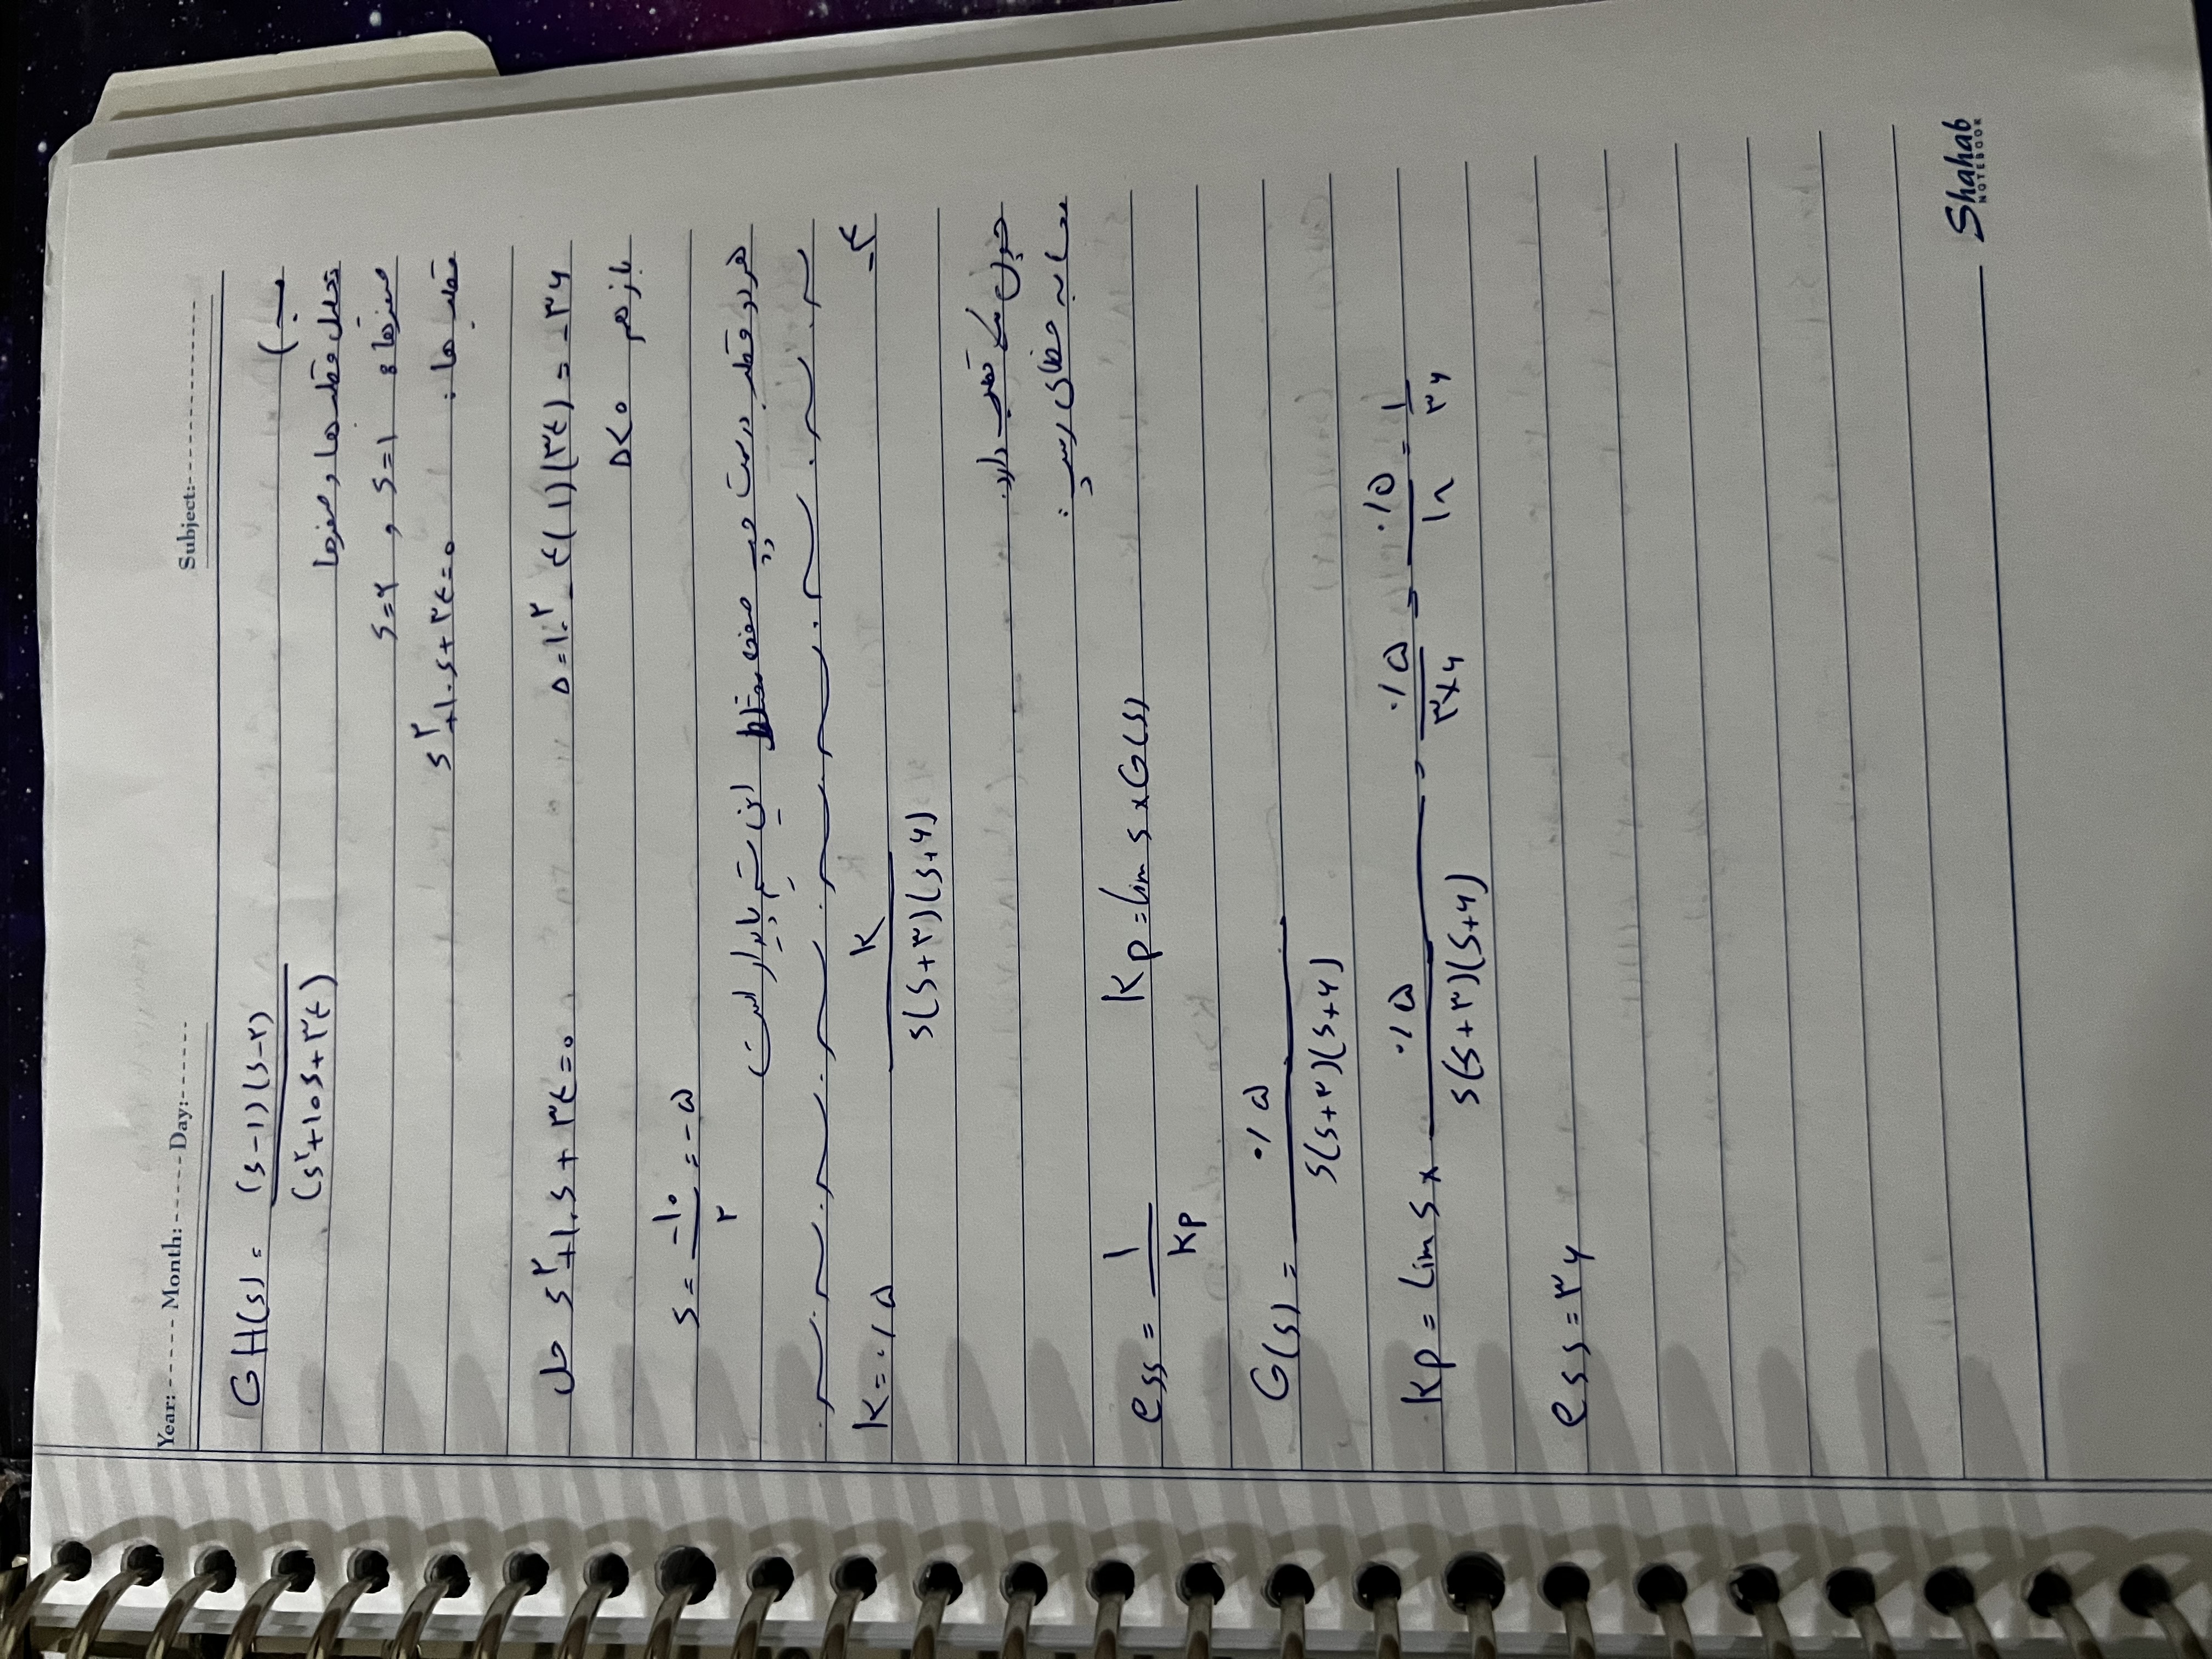 Year: ----- Month: ----- Day: ------ Subject: --------------
ب)
GH(s) = (s-۱)(s-۲) / (s^۲+۱۰s+۳۴)
تحلیل قطب ها و صفرها
صفرها: s=۱ و s=۲
قطب ها: s^۲+۱۰s+۳۴=۰
حل s^۲+۱۰s+۳۴=۰ Δ=۱۰^۲-۴(۱)(۳۴)=-۳۶
باز هم Δ<۰
s = -۱۰/۲ = -۵
هر دو قطب در سمت چپ صفحه این ستم پایدار است
۴-
K=۰/۵ K / s(s+۳)(s+۶)
چون یک قطب دارد.
محاسبه خطای رمپ:
ess = ۱/Kp Kp=lim s×G(s)
G(s) = ۰/۵ / s(s+۳)(s+۶)
Kp = Lim s× ۰/۵ / s(s+۳)(s+۶) = ۰/۵ / ۳×۶ = ۰/۵ / ۱۸ = ۱/۳۶
ess=۳۶
Shahab
NOTEBOOK